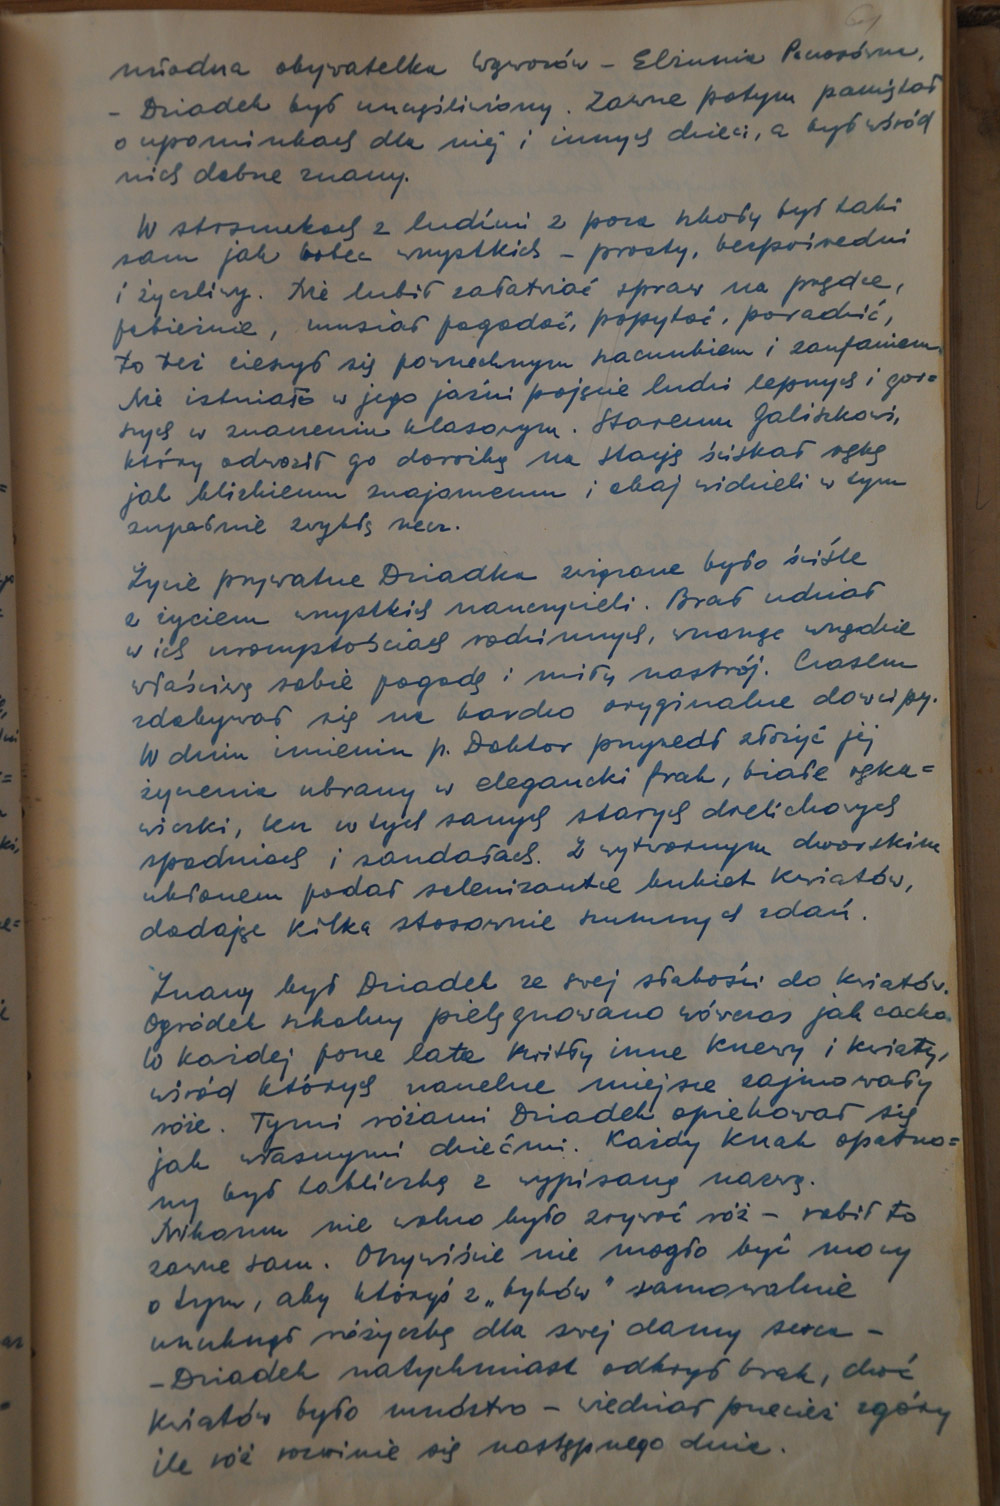 młodna obywatelka Wąwozów – Elżunia Panasówna,
– Dziadek był uszczęśliwiony. Zawsze potym pamiętał
o upominkach dla niej i innych dzieci, a był wśród
nich dobrze znany.
W stosunkach z ludźmi z poza szkoły był taki
sam jak wobec wszystkich – prosty, bezpośredni
i życzliwy. Nie lubił załatwiać spraw na prędce,
pobieżnie, musiał pogadać, popytać, poradzić,
to też cieszył się powszechnym szacunkiem i zaufaniem.
Nie istniało w jego jaźni pojęcie ludzi lepszych i gor=
szych w znaczeniu klasowym. Staremu Galiszkowi,
który odwoził go dorożką na stację ściskał rękę
jak bliskiemu znajomemu i obaj widzieli w tym
zupełnie zwykłą rzecz.
Życie prywatne Dziadka związane było ściśle
z życiem wszystkich nauczycieli. Brał udział
w ich uroczystościach rodzinnych, wnosząc wszędzie
właściwą sobie pogodę i miły nastrój. Czasem
zdobywał się na bardzo oryginalne dowcipy.
W dniu imienin p. Doktor przyszedł złożyć jej
życzenia ubrany w elegancki frak, białe ręka=
wiczki, lecz w tych samych starych drelichowych
spodniach i sandałach. Z wytwornym dworskim
ukłonem podał solenizantce bukiet kwiatów,
dodając kilka stosownie szumnych zdań.
Znany był Dziadek ze swej słabości do kwiatów.
Ogródek szkolny pielęgnowano wówczas jak cacko
W każdej porze lata kwitły inne krzewy i kwiaty,
wśród których naczelne miejsce zajmowały
róże. Tymi różami Dziadek opiekował się
jak własnymi dziećmi. Każdy krzak opatrzo=
ny był tabliczką z wypisaną nazwą.
Nikomu nie wolno było zrywać róż – robił to
zawsze sam. Oczywiście nie mogło być mowy
o tym, aby któryś z „byków" samowolnie
uszczknął różyczkę dla swej damy serca –
– Dziadek natychmiast odkrył brak, choć
kwiatów było mnóstwo – wiedział przecież zgóry
ile róż rozwinie się następnego dnia.